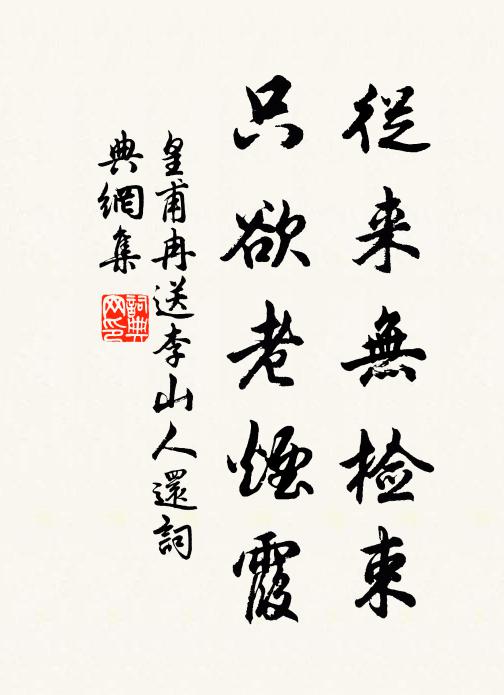 從来無檢束
只欲老煙霞
皇甫冉送李山人還詞
典網集
詞典
网印